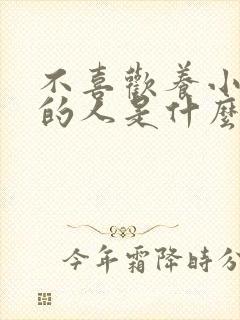 不喜歡養小
的人是什麼
今年霜降時分